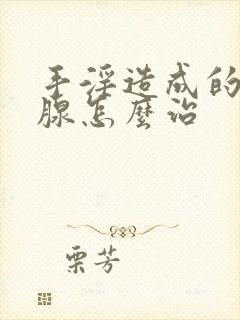 手淫造成的
腺怎麼治
栗芳